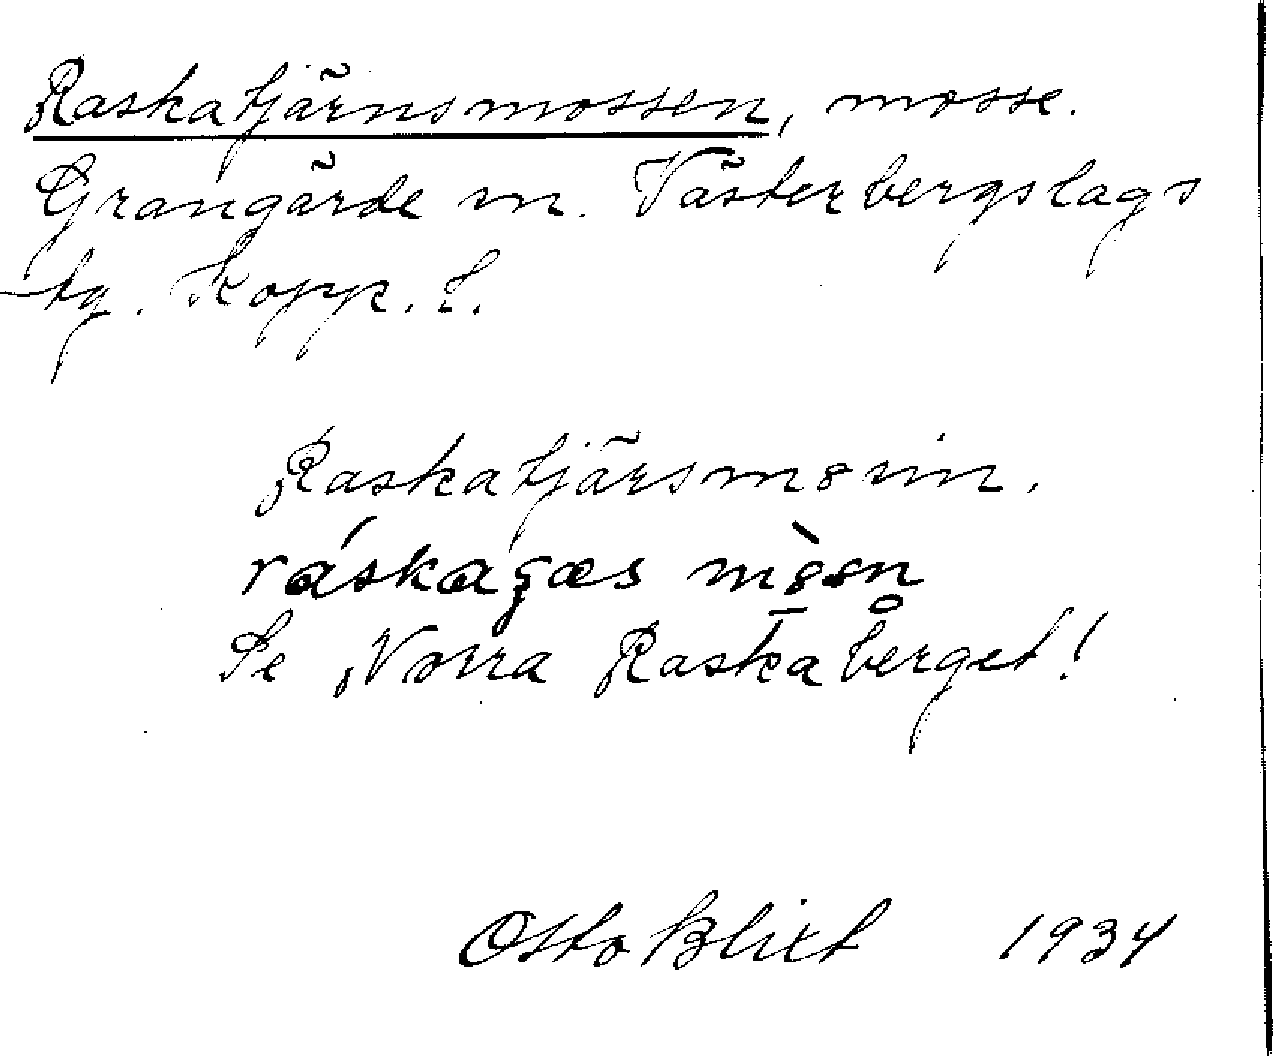 Raskatjärnsmossen, mosse.
Grangärde sn. Västerbergslags
tg. Kopp. l.
Raskatjärsmosin.
Se Norra Raskaberget!
Otto Blixt 1934